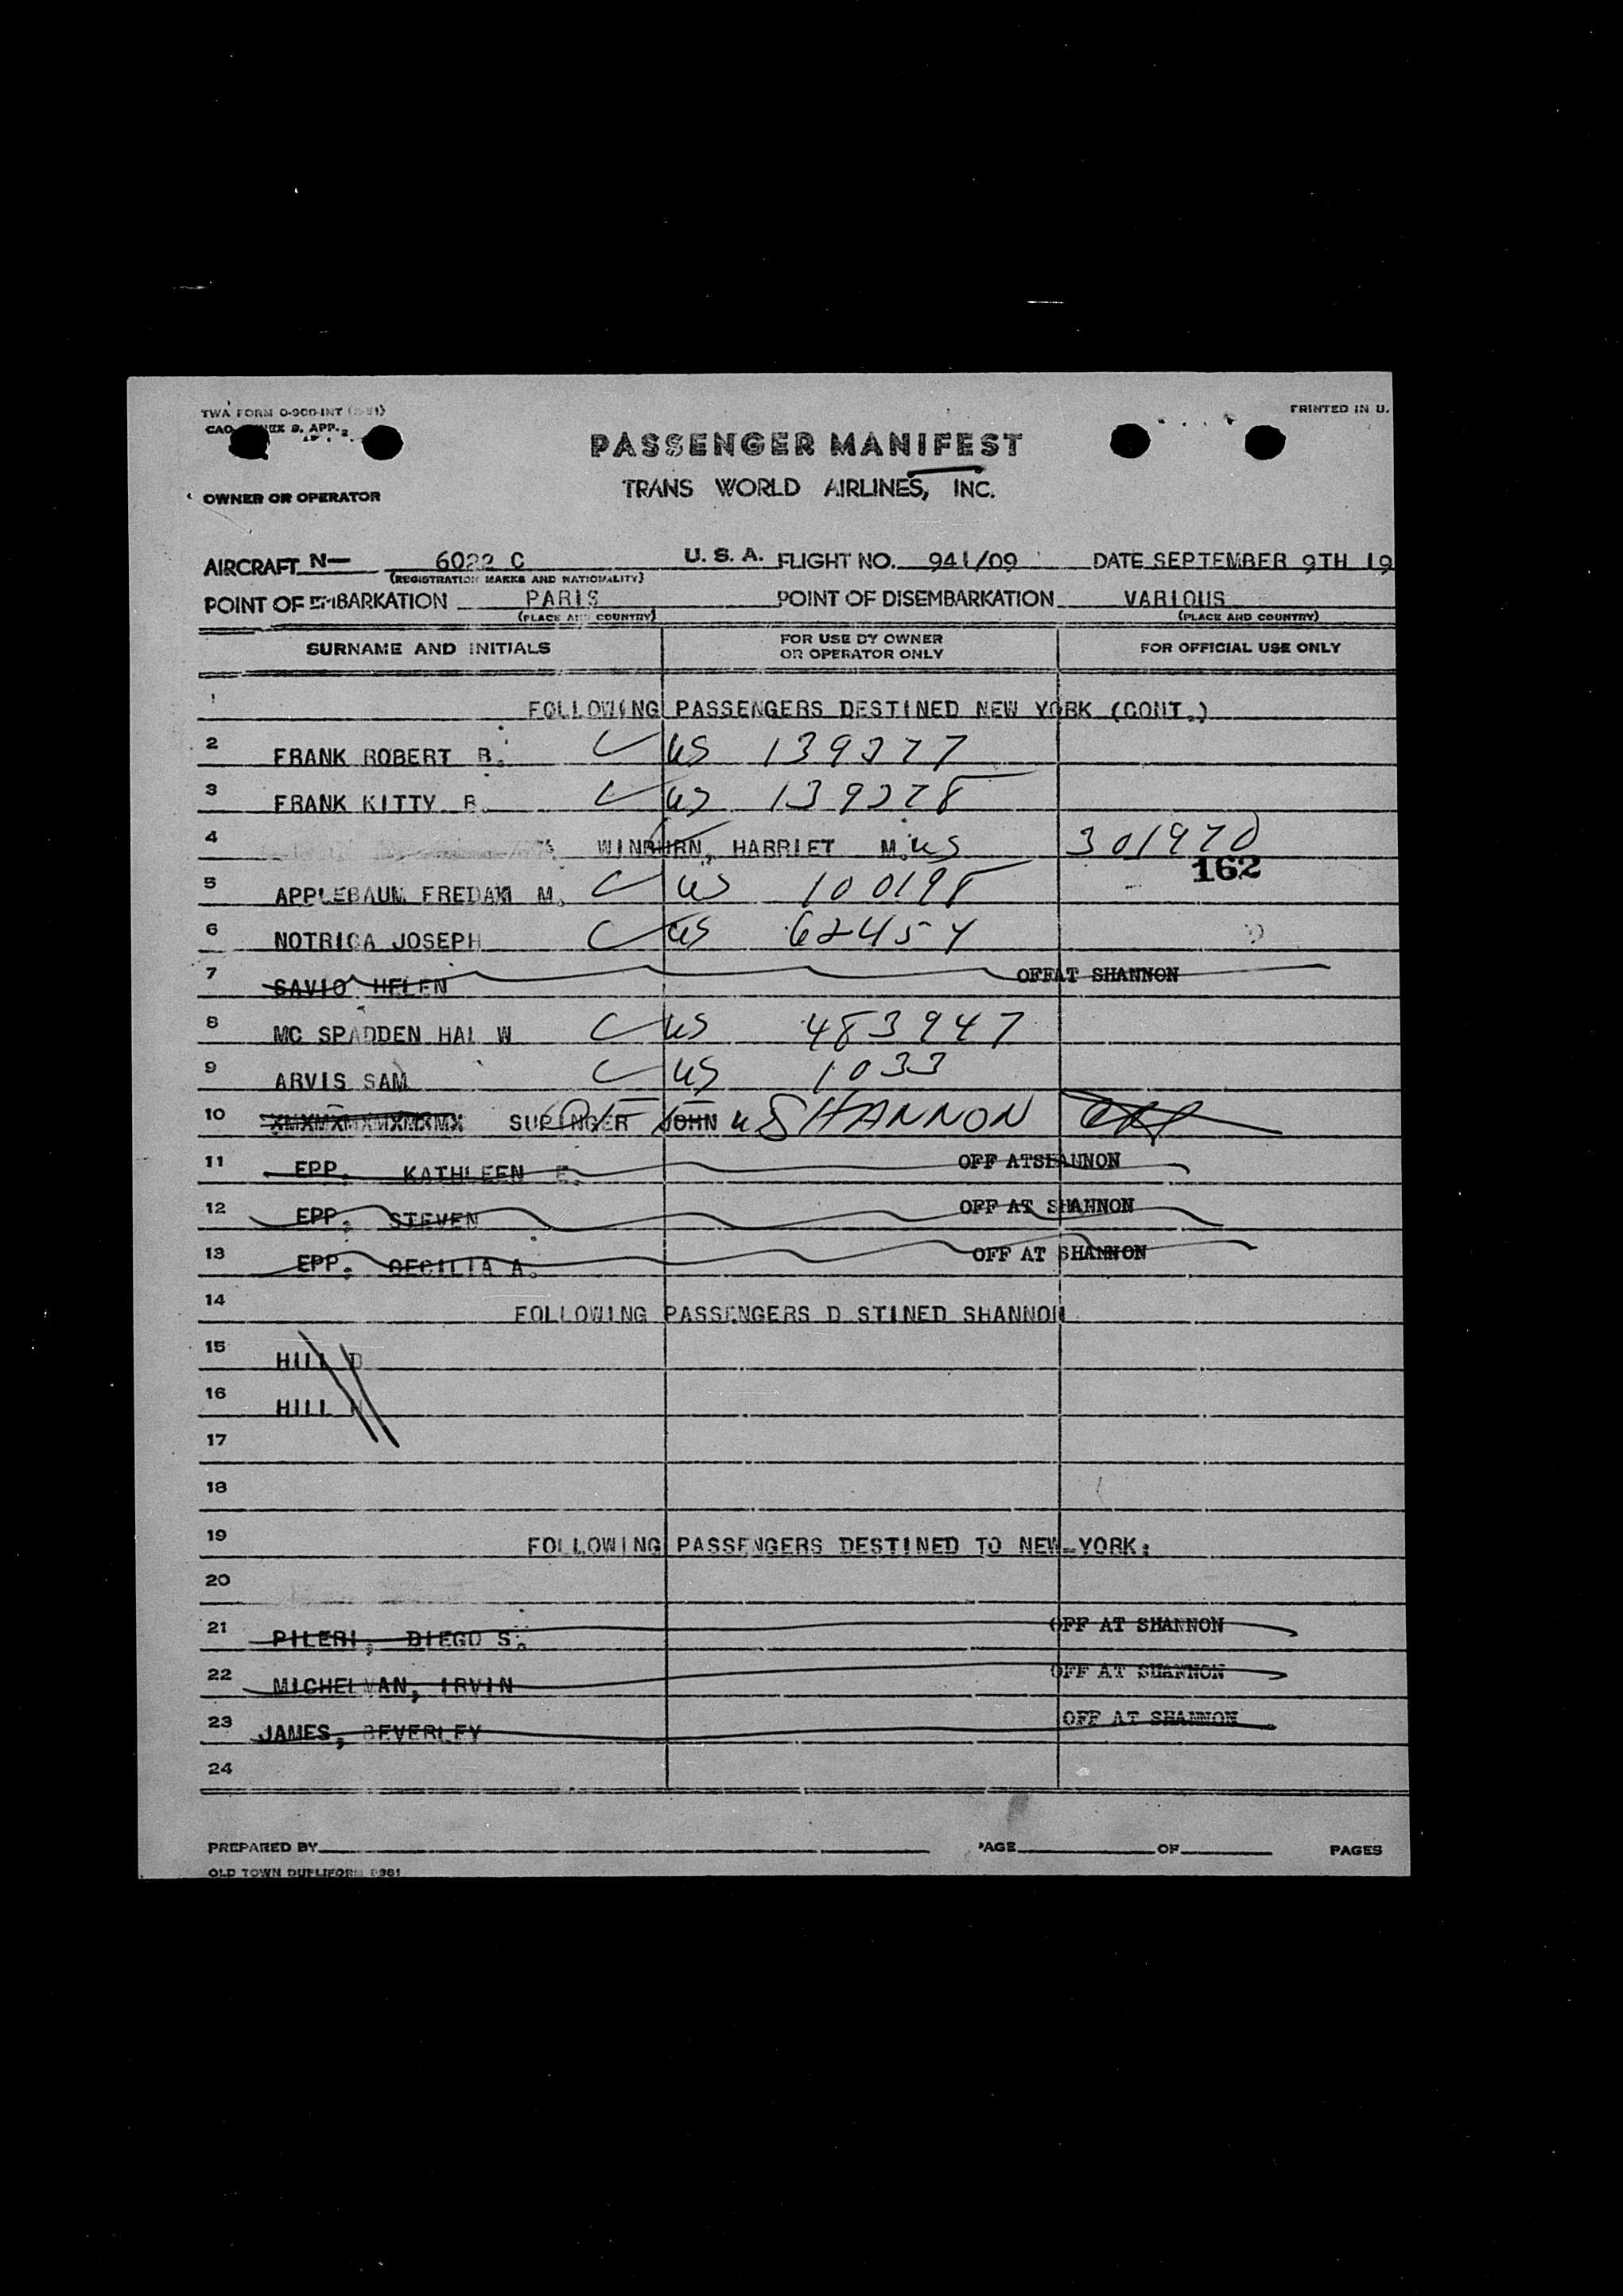 TWA FORM O-900-INT
PRINTED IN U.
PASSENGER MANIFEST
OWNER OR OPERATOR
TRANS WORLD AIRLINES, INC.
AIRCRAFT N— 6022 C U. S. A. FLIGHT NO. 941/09 DATE SEPTEMBER 9TH 19
(REGISTRATION MARKS AND NATIONALITY)
POINT OF EMBARKATION PARIS POINT OF DISEMBARKATION VARIOUS
(PLACE AND COUNTRY) (PLACE AND COUNTRY)
SURNAME AND INITIALS FOR USE BY OWNER OR OPERATOR ONLY FOR OFFICIAL USE ONLY
1 FOLLOWING PASSENGERS DESTINED NEW YORK (CONT.)
2 FRANK ROBERT B. US 139277
3 FRANK KITTY B. US 139278
4 HARRIET M. US 301970
162
5 APPLEBAUM M. US 100198
6 NOTRICA JOSEPH US 62454
7 SAVIO HELEN OFFAT SHANNON
8 MC SPADDEN HAL W US 483947
9 ARVIS SAM US 1033
10 JOHN SHANNON
11 EPP. KATHLEEN E. OFF AT SHANNON
12 EPP. STEVEN OFF AT SHANNON
13 EPP. CECILIA A. OFF AT SHANNON
14 FOLLOWING PASSENGERS D STINED SHANNON
15 HILL D
16 HILL
17
18
19 FOLLOWING PASSENGERS DESTINED TO NEW-YORK:
20
21 PILERI, DIEGO S. OFF AT SHANNON
22 IRVIN OFF AT SHANNON
23 JAMES, BEVERLEY OFF AT SHANNON
24
PREPARED BY PAGE OF PAGES
OLD TOWN DUPLIFORM